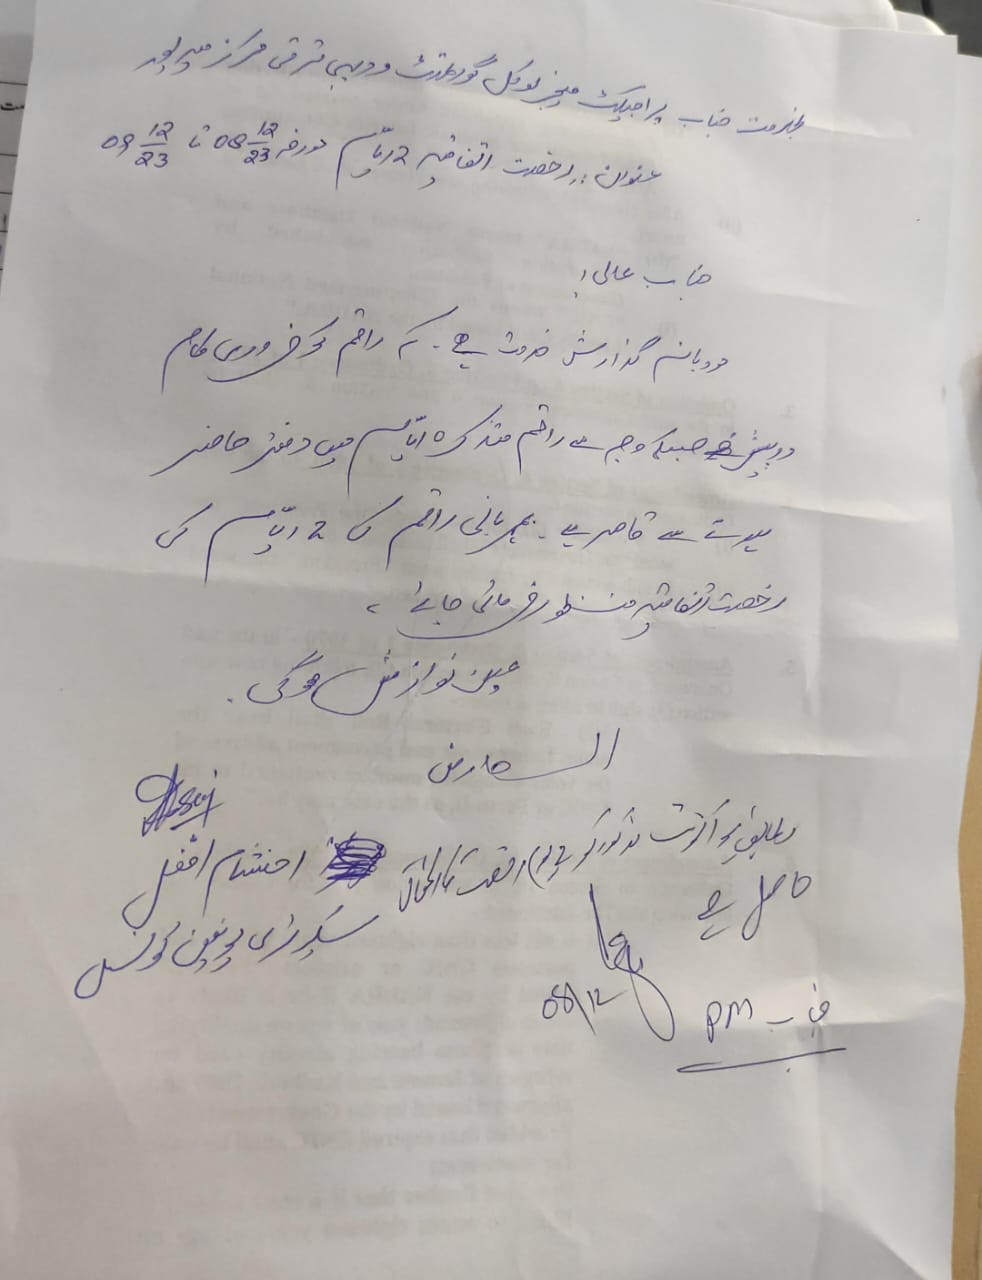 بخدمت جناب پراجیکٹ مینجر لوکل گورنمنٹ و دیہی ترقی مرکز میرپور
عنوان :۔ رخصت اتفاقیہ 2 ایام مورخہ 08 12/23 تا 09 12/23
جناب عالی!
مودبانہ گذارش خدمت ہے۔ کہ راقم کو ضروری کام
درپیش ہے جسکی وجہ سے راقم متذکرہ ایام میں دفتر حاضر
ہونے سے قاصر ہے۔ مہربانی راقم کی 2 ایام کی
رخصت اتفاقیہ منظور فرمائی جائے،
عین نوازش ہوگی۔
العارض
احتشام افضل
سیکرٹری یونین کونسل
مطابق ریکارڈ رخصت اتفاقیہ
قابل ہے
08/12
جناب PM